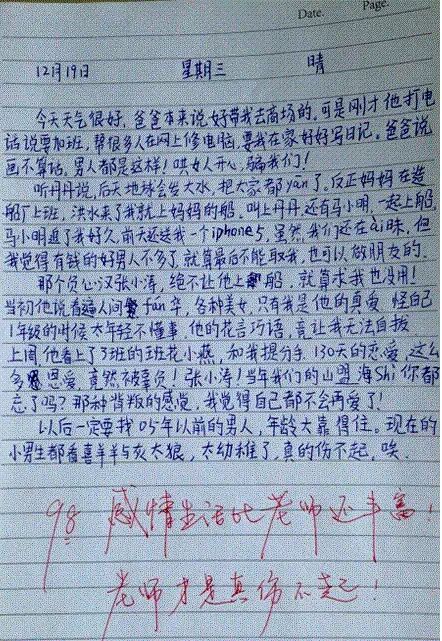 Date. Page.
12月19日 星期三 晴
今天天气很好,爸爸本来说好带我去商场的,可是刚才他打电
话说要加班,帮很多人在网上修电脑,要我在家好好写日记。爸爸说
画不算话,男人都是这样!哄女人开心,骗我们!
听丹丹说,后天地球会发大水,把大家都yān了。反正妈妈在造
船厂上班,洪水来了我就上妈妈的船。叫上丹丹,还有马小明,一起上船。
马小明追了我好久,前天还送我一个iphone5,虽然我们还在ài昧,但
我觉得有钱的好男人不多了,就算最后不能取我,也可以做朋友的。
那个负心汉张小涛,绝不让他上船,就算求我也没用!
当初他说看遍人间fán华,各种美女,只有我是他的真爱。怪自己
1年级的时候太年轻不懂事,他的花言巧语,竟让我无法自拔。
上周他看上了3班的班花小燕,和我提分手,130天的恋爱,这么
多恩爱,竟然被辜负!张小涛!当年我们的山盟海Shi你都
忘了吗?那种背叛的感觉,我觉得自己都不会再爱了!
以后一定要找05年以前的男人,年龄大靠得住。现在的
小男生都看喜羊羊与灰太狼,太幼稚了,真的伤不起,唉.
98 感情生活比老师还丰富!
老师才是真伤不起!